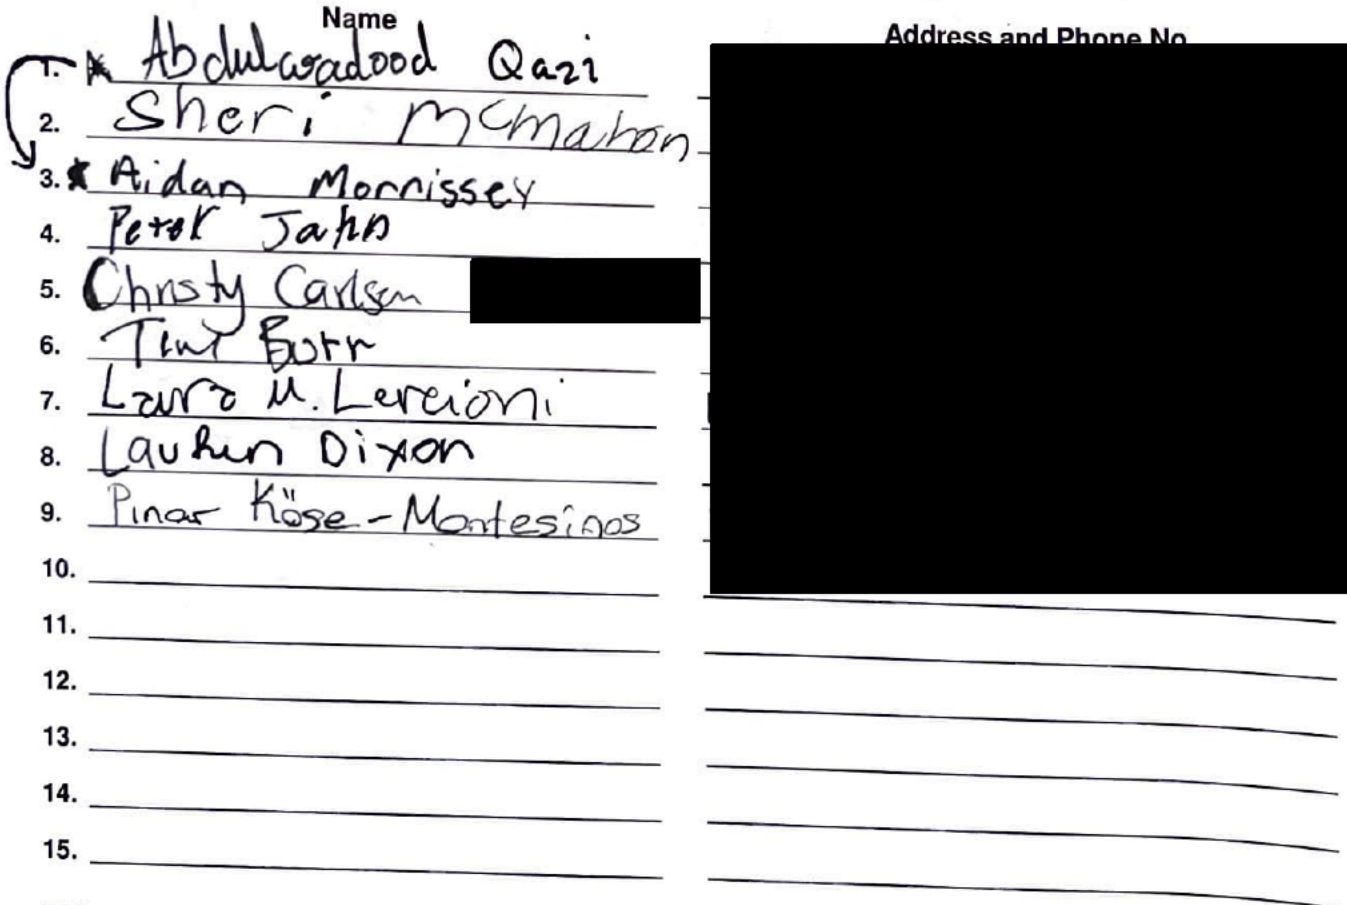 Name Address and Phone No.
1. * Abdulwadood Qazi
2. Sheri McMahon
3. * Aidan Morrissey
4. Peter Jahn
5. Christy Carlson
6. Burr
7. Laura M. Lercioni
8. Lauren Dixon
9. Pınar Köse-Montesinos
10.
11.
12.
13.
14.
15.